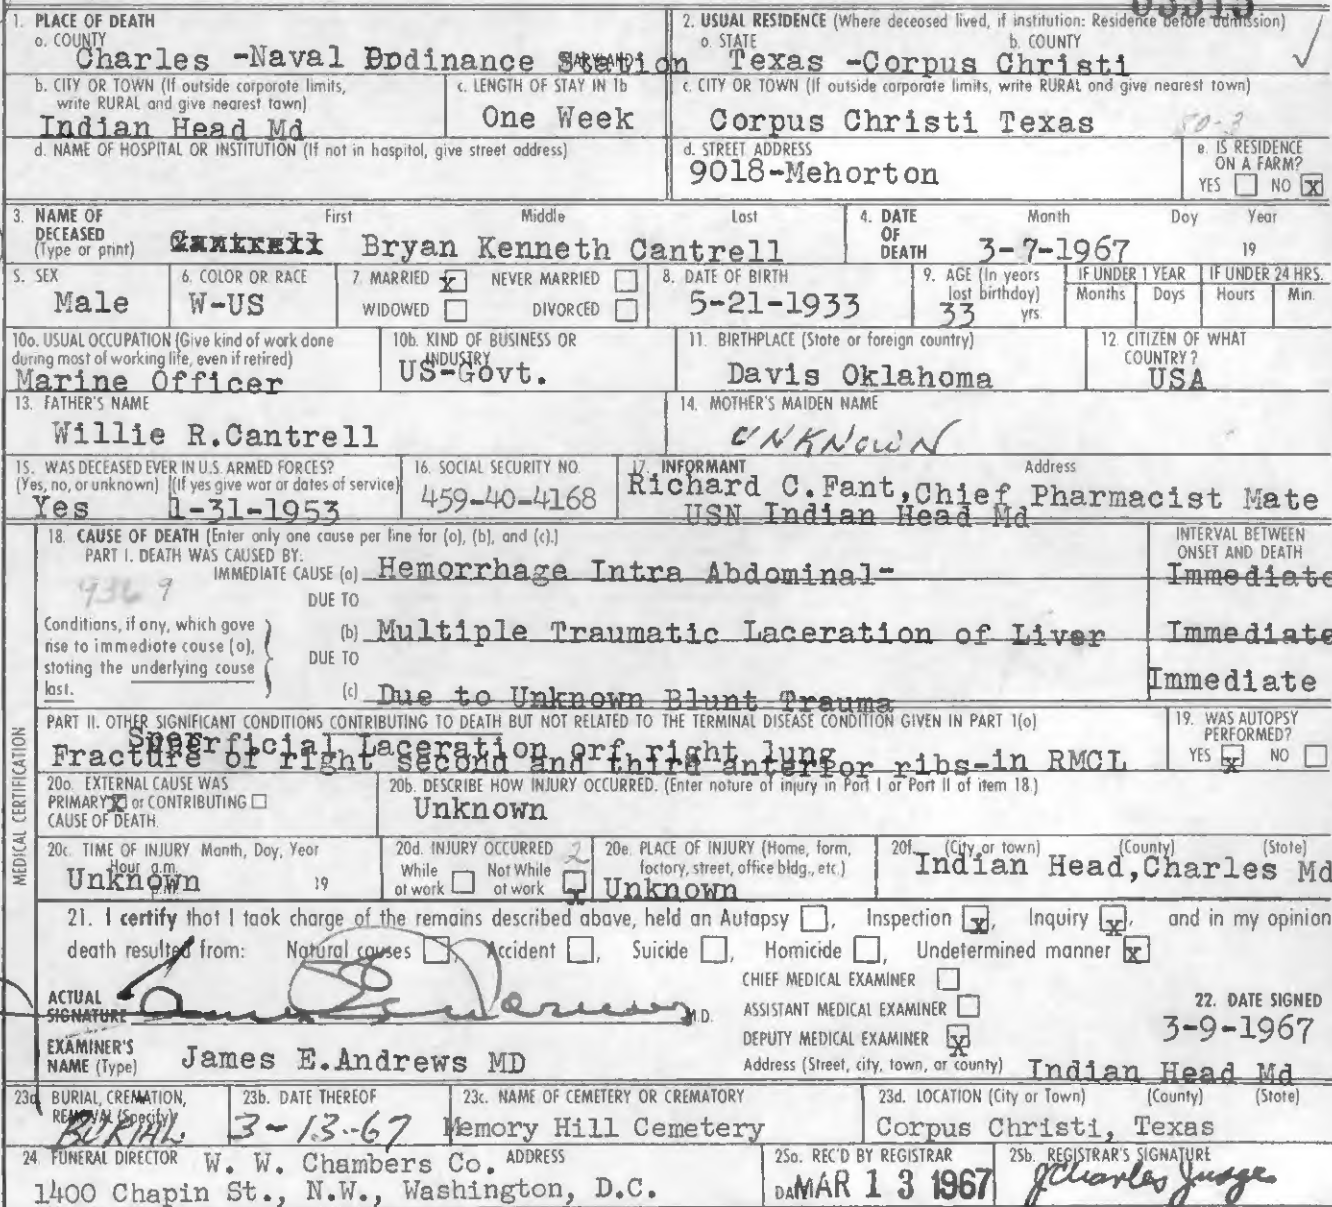 1. PLACE OF DEATH
a. COUNTY
Charles -Naval Dodinance Station
b. CITY OR TOWN (If outside corporate limits, write RURAL and give nearest town)
Indian Head Md
c. LENGTH OF STAY IN 1b
One Week
d. NAME OF HOSPITAL OR INSTITUTION (If not in hospital, give street address)
2. USUAL RESIDENCE (Where deceased lived, if institution: Residence before admission)
a. STATE b. COUNTY
Texas -Corpus Christi
c. CITY OR TOWN (If outside corporate limits, write RURAL and give nearest town)
Corpus Christi Texas
d. STREET ADDRESS
9018-Mehorton
e. IS RESIDENCE ON A FARM?
YES NO X
3. NAME OF DECEASED (Type or print)
First Middle Last
Bryan Kenneth Cantrell
4. DATE OF DEATH Month Day Year
3-7-1967 19
5. SEX
Male
6. COLOR OR RACE
W-US
7. MARRIED X NEVER MARRIED
WIDOWED DIVORCED
8. DATE OF BIRTH
5-21-1933
9. AGE (In years last birthday)
33 yrs.
IF UNDER 1 YEAR
Months Days
IF UNDER 24 HRS.
Hours Min.
10a. USUAL OCCUPATION (Give kind of work done during most of working life, even if retired)
Marine Officer
10b. KIND OF BUSINESS OR INDUSTRY
US-Govt.
11. BIRTHPLACE (State or foreign country)
Davis Oklahoma
12. CITIZEN OF WHAT COUNTRY?
USA
13. FATHER'S NAME
Willie R.Cantrell
14. MOTHER'S MAIDEN NAME
UNKNOWN
15. WAS DECEASED EVER IN U.S. ARMED FORCES?
(Yes, no, or unknown) (If yes give war or dates of service)
Yes 1-31-1953
16. SOCIAL SECURITY NO.
459-40-4168
17. INFORMANT Address
Richard C.Fant,Chief Pharmacist Mate
USN Indian Head Md
MEDICAL CERTIFICATION
18. CAUSE OF DEATH (Enter only one cause per line for (a), (b), and (c).)
PART I. DEATH WAS CAUSED BY:
IMMEDIATE CAUSE (a) Hemorrhage Intra Abdominal-
INTERVAL BETWEEN ONSET AND DEATH
Immediate
DUE TO
Conditions, if any, which gave rise to immediate cause (a), stating the underlying cause last.
(b) Multiple Traumatic Laceration of Liver Immediate
DUE TO
(c) Due to Unknown Blunt Trauma Immediate
PART II. OTHER SIGNIFICANT CONDITIONS CONTRIBUTING TO DEATH BUT NOT RELATED TO THE TERMINAL DISEASE CONDITION GIVEN IN PART 1(a)
Superficial Laceration orf right lung
Fracture of right second and third anterior ribs-in RMCL
19. WAS AUTOPSY PERFORMED?
YES X NO
20a. EXTERNAL CAUSE WAS
PRIMARY X or CONTRIBUTING
CAUSE OF DEATH.
20b. DESCRIBE HOW INJURY OCCURRED. (Enter nature of injury in Part I or Part II of item 18.)
Unknown
20c. TIME OF INJURY Month, Day, Year
Hour a.m. p.m.
Unknown 19
20d. INJURY OCCURRED 2
While at work Not While at work X
20e. PLACE OF INJURY (Home, farm, factory, street, office bldg., etc.)
Unknown
20f. (City or town) (County) (State)
Indian Head,Charles Md
21. I certify that I took charge of the remains described above, held an Autopsy , Inspection X, Inquiry X, and in my opinion
death resulted from: Natural causes , Accident , Suicide , Homicide , Undetermined manner X
ACTUAL SIGNATURE M.D.
CHIEF MEDICAL EXAMINER
ASSISTANT MEDICAL EXAMINER
DEPUTY MEDICAL EXAMINER X
22. DATE SIGNED
3-9-1967
EXAMINER'S NAME (Type) James E.Andrews MD
Address (Street, city, town, or county) Indian Head Md
23a. BURIAL, CREMATION, REMOVAL (Specify)
BURIAL
23b. DATE THEREOF
3-13-67
23c. NAME OF CEMETERY OR CREMATORY
Memory Hill Cemetery
23d. LOCATION (City or Town) (County) (State)
Corpus Christi, Texas
24. FUNERAL DIRECTOR ADDRESS
W. W. Chambers Co.
1400 Chapin St., N.W., Washington, D.C.
25a. REC'D BY REGISTRAR
DATE MAR 13 1967
25b. REGISTRAR'S SIGNATURE
J Charles Judge